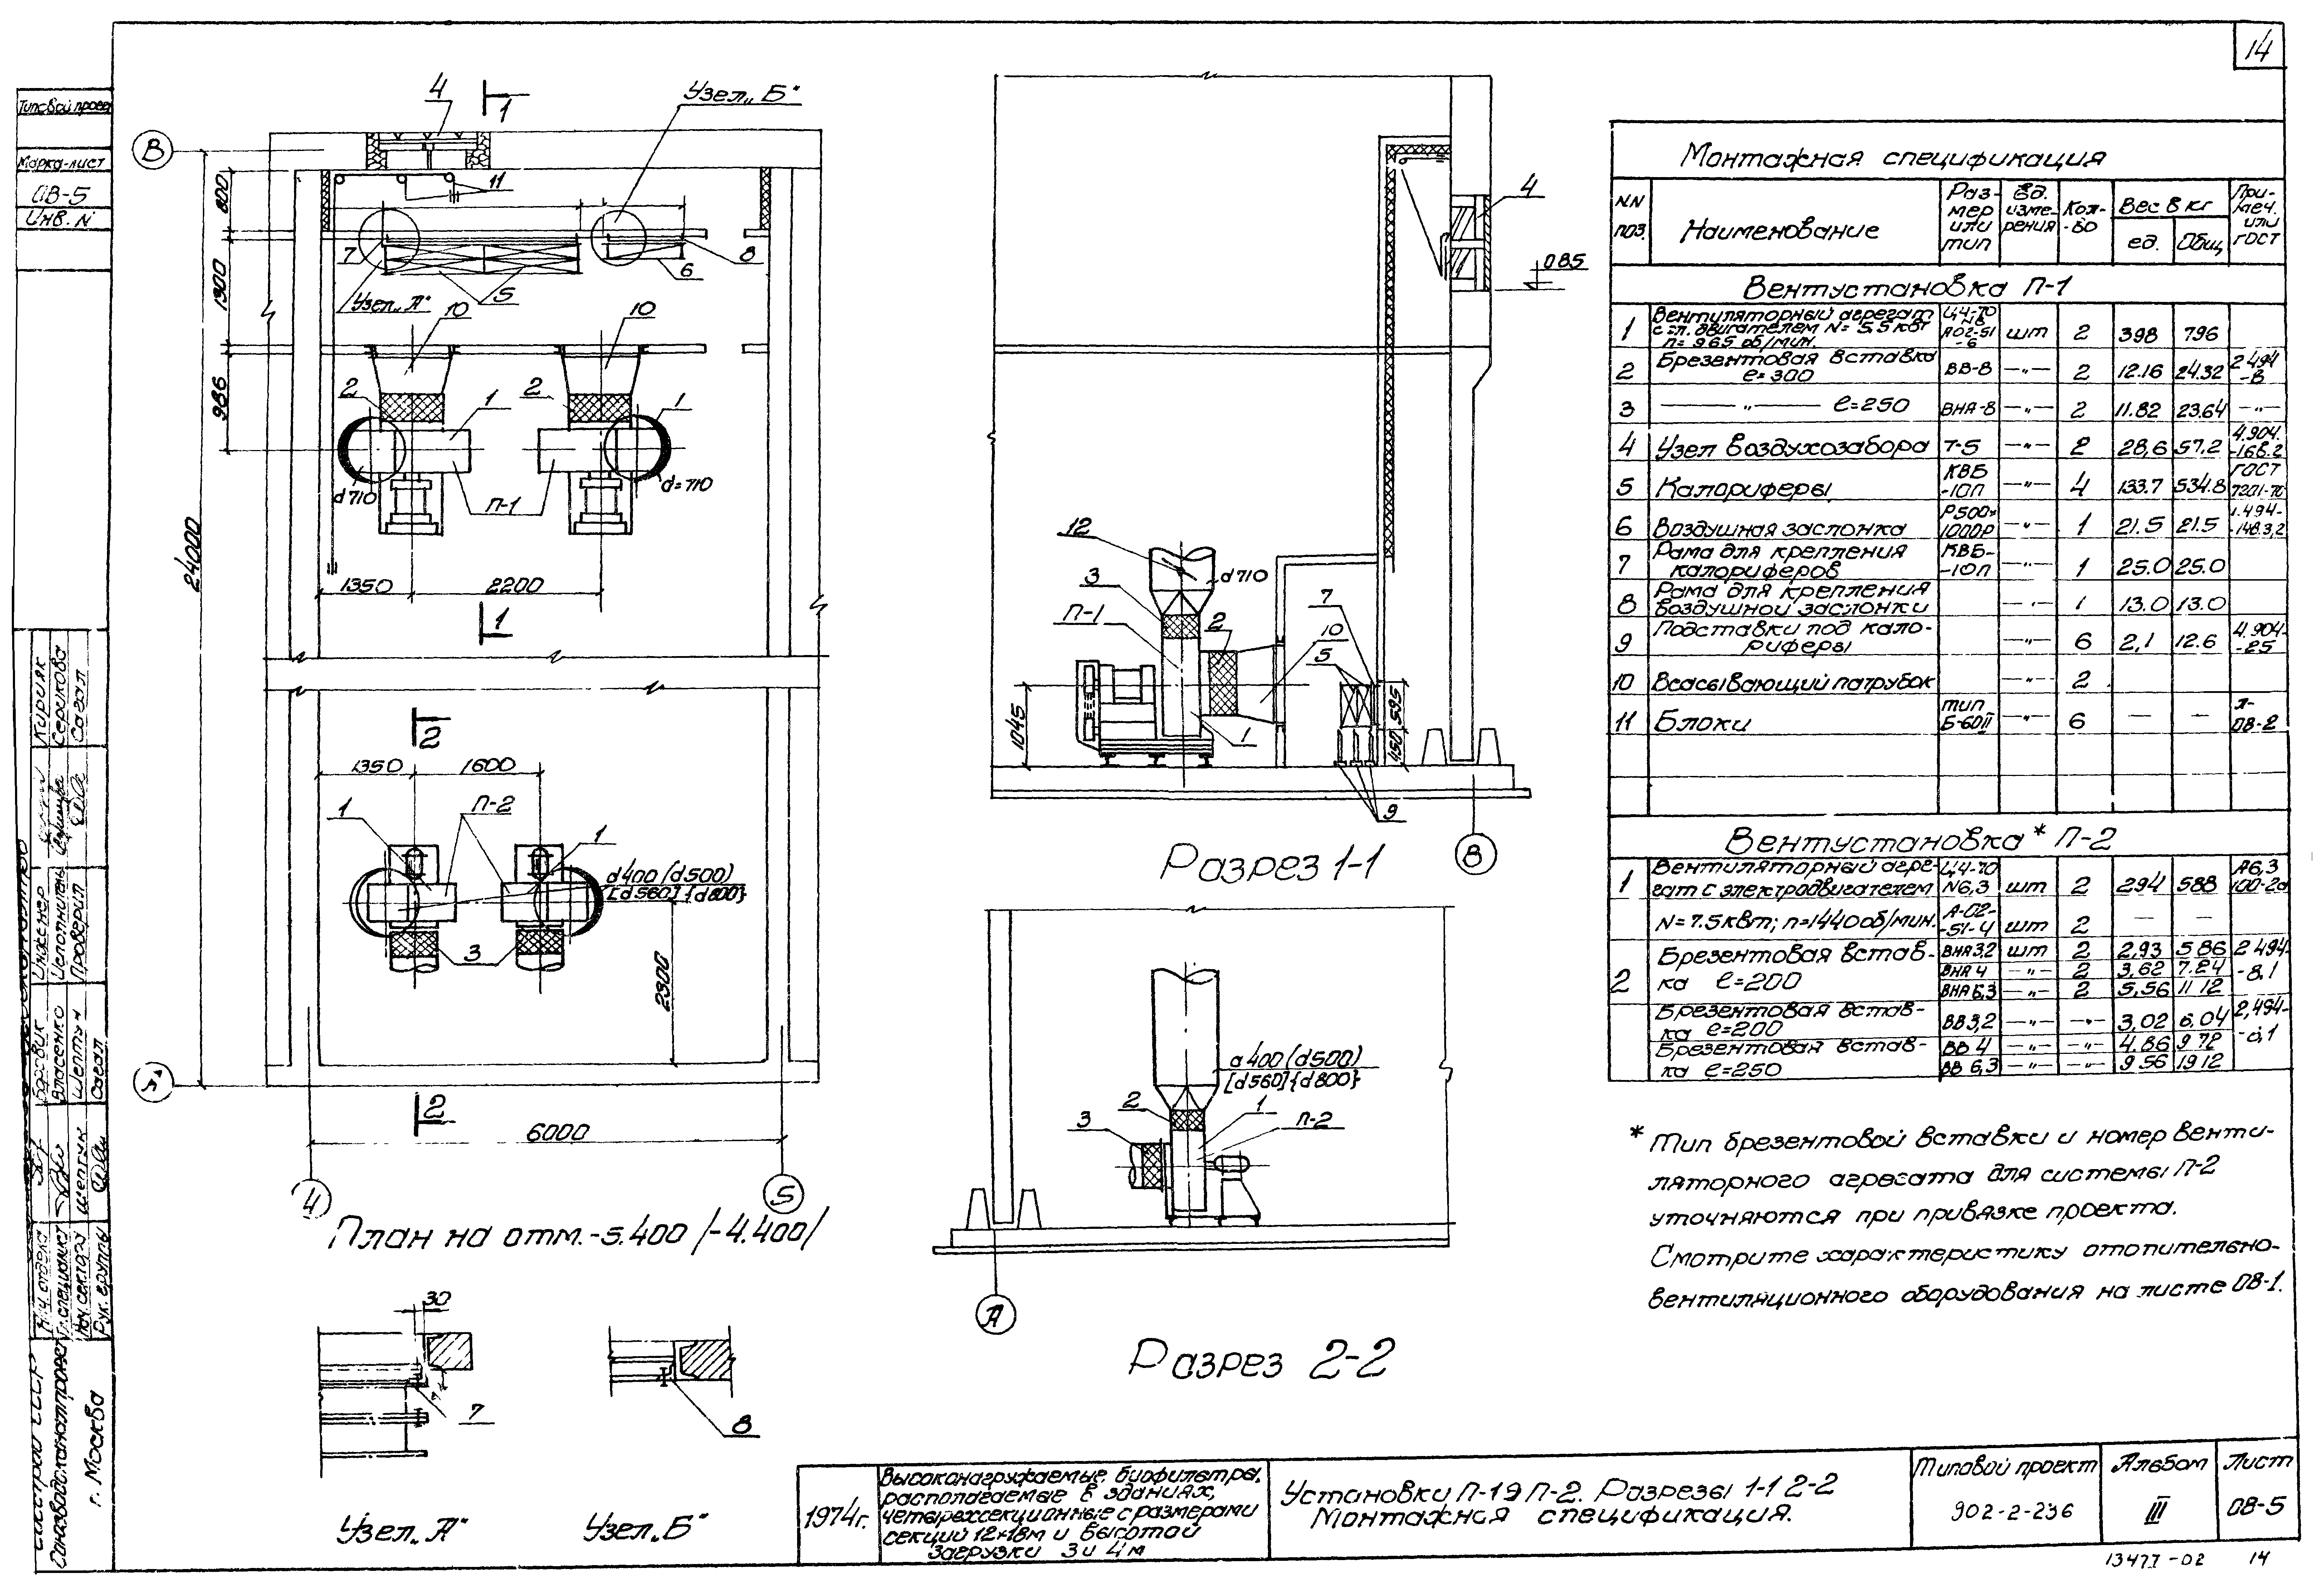 14
Типовой проек
Марка-лист
ОВ-5
Инв. N
4
1
Узел „Б"
В
800
11
7
8
6
Узел „А"
5
1300
10
10
986
2
1
2
1
d710
П-1
d=710
24000
1350
2200
1
2
1350
1600
1
П-2
1
d400 (d500)
[d560] {d800}
3
2300
А
2
6000
4
5
План на отм.-5.400 /-4.400/
30
7
8
Узел „А"
Узел „Б"
4
0.85
12
3
d710
П-1
2
7
10
5
1045
1
595
450
9
Разрез 1-1
В
d400 (d500)
[d560] {d800}
2
1
3
П-2
А
Разрез 2-2
Монтажная спецификация
NN поз. Наименование Раз-мер или тип Ед. изме-рения Кол-во Вес в кг ед. Общ. При-меч. или ГОСТ
Вентустановка П-1
1 Вентиляторный агрегат Ц4-70
с эл. двигателем N= 5.5 квт N8 А02-51 шт 2 398 796
n= 965 об/мин. -6
2 Брезентовая вставка ВВ-8 —„— 2 12.16 24.32 2 494
ℓ=300 -8
3 —— „ —— ℓ=250 ВНА-8 —„— 2 11.82 23.64 —„—
4 Узел воздухозабора Т-5 —„— 2 28,6 57.2 4.904.
-168.2
5 Калориферы КВБ -10п —„— 4 133.7 534.8 ГОСТ 7201-70
6 Воздушная заслонка Р500х 1000Р —„— 1 21.5 21.5 1.494-
-148.3,2
7 Рама для крепления КВБ-
калориферов -10п —„— 1 25.0 25.0
8 Рама для крепления
воздушной заслонки 1 13.0 13.0
9 Подставки под кало- —„— 6 2,1 12.6 4.904-
риферы -25
10 Всасывающий патрубок —„— 2
11 Блоки тип Б-60II —„— 6 — — 08-2
Вентустановка* П-2
1 Вентиляторный агре- Ц4-70 А6,3
гат с электродвигателем N6,3 шт 2 294 588
N=7.5квт; n=1440об/мин. А-02- -51-4 шт 2 — —
2 Брезентовая встав- ВНА3,2 шт 2 2,93 5.86 2 494-
ка ℓ=200 ВНА 4 —„— 2 3,62 7.24 -8,1
ВНА 6,3 —„— 2 5,56 11 12
Брезентовая встав- 2,494-
ка ℓ=200 ВВ3,2 —„— —„— 3,02 6,04
Брезентовая встав- ВВ 4 —„— —„— 4.86 9 72
ка ℓ=250 ВВ 6,3 —„— —„— 9 56 19 12
* Тип брезентовой вставки и номер венти-
ляторного агрегата для системы П-2
уточняются при привязке проекта.
Смотрите характеристику отопительно-
вентиляционного оборудования на листе ОВ-1.
Кирияк
Серикова
Сагал
Инженер
Исполнитель
Проверил
Боровик
Власенко
Шептун
Сагал
Нач. отдела
Гл. специалист
Нач. сектора
Рук. группы
Союзводоканалпроект
г. Москва
1974г.
Высоконагружаемые биофильтры,
располагаемые в зданиях,
четырехсекционные с размерами
секций 12×18м и высотой
загрузки 3 и 4м
Установки П-1 и П-2. Разрезы 1-1 2-2
Монтажная спецификация.
Типовой проект
902-2-236
Альбом
III
Лист
ОВ-5
13477-02 14